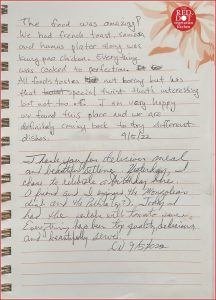 RED BOX
vegetarian
Kitchen
The food was amazing!
We had french toast, samosa
and humus plater along was
kung pao chicken. Everything
was cooked to perfection
All foods tastes not boring but has
that special twist that's interesting
but not too off. I am very happy
we found this place and we are
definitely coming back to try different
dishes. 9/5/22
Thank you for delicious meal
and beautiful setting. Yesterday, I
chose to celebrate a birthday here
(friend) and I enjoyed the Mongolean
dish and the Today I
had the
Everything has been top quality, delicious,
and beautifully served.
9/5/2022